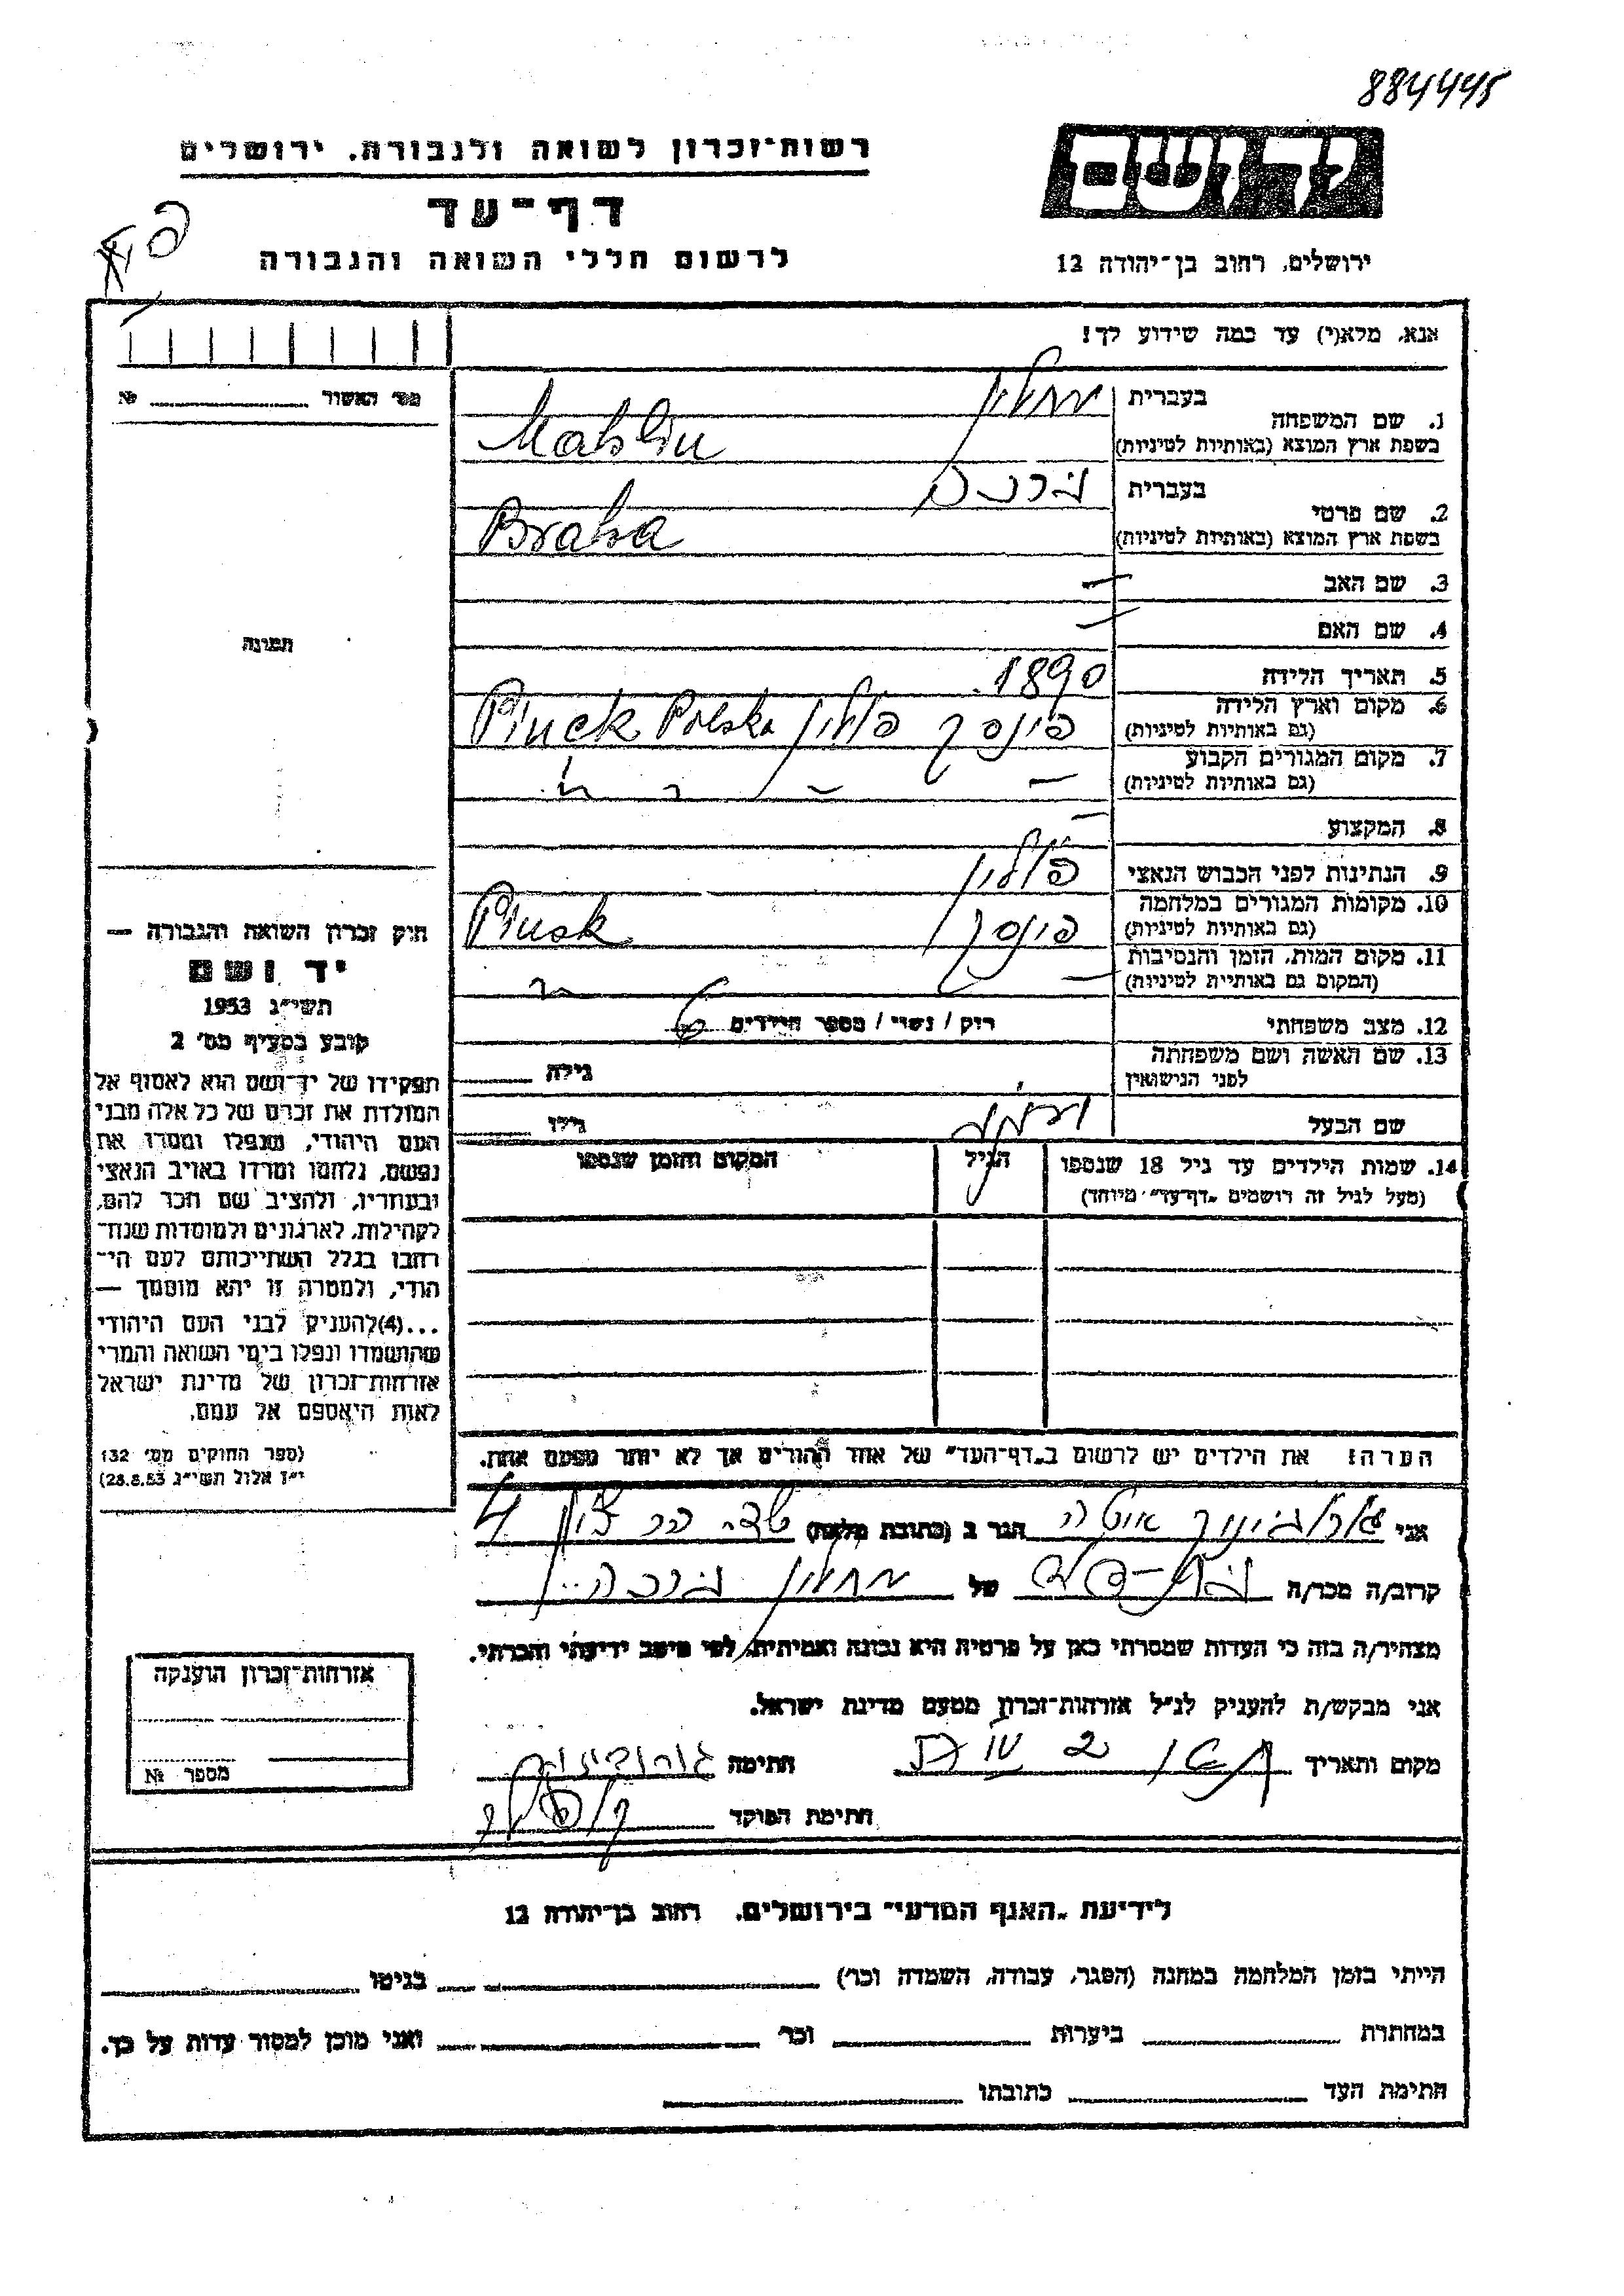 884445
רשות-זכרון לשואה ולגבורה, ירושלים
דף-עד
לרשום חללי השואה והגבורה
יד ושם
ירושלים, רחוב בן-יהודה 12
אנא, מלא(י) עד כמה שידוע לך!
מס' האשור № 
1. שם המשפחה
בעברית
בשפת ארץ המוצא (באותיות לטיניות)
מחלין
Mahlin
2. שם פרטי
בעברית
בשפת ארץ המוצא (באותיות לטיניות)
ברכה
Braha
3. שם האב —
4. שם האם —
תמונה
5. תאריך הלידה 1890
6. מקום וארץ הלידה
(גם באותיות לטיניות)
פינסק פולין Pinck Polska
7. מקום המגורים הקבוע
(גם באותיות לטיניות)
8. המקצוע —
9. הנתינות לפני הכבוש הנאצי פולין
10. מקומות המגורים במלחמה
(גם באותיות לטיניות)
פינסק Pinsk
11. מקום המות, הזמן והנסיבות
(המקום גם באותיות לטיניות)
12. מצב משפחתי רווק / נשוי / מספר הילדים 6
13. שם האשה ושם משפחתה
לפני הנישואין
גילה
שם הבעל
גילו
14. שמות הילדים עד גיל 18 שנספו
(מעל לגיל זה רושמים "דף-עד" מיוחד)
הגיל
המקום והזמן שנספו
חוק זכרון השואה והגבורה —
יד ושם
תשי"ג 1953
קובע בסעיף מס' 2
תפקידו של יד-ושם הוא לאסוף אל
המולדת את זכרם של כל אלה מבני
העם היהודי, שנפלו ומסרו את
נפשם, נלחמו ומרדו באויב הנאצי
ובעוזריו, ולהציב שם וזכר להם,
לקהילות, לארגונים ולמוסדות שנח-
רבו בגלל השתייכותם לעם הי-
הודי, ולמטרה זו יהא מוסמך —
...(4)להעניק לבני העם היהודי
שהושמדו ונפלו בימי השואה והמרי
אזרחות-זכרון של מדינת ישראל
לאות היאספם אל עמם.
(ספר החוקים מס' 132
י"ז אלול תשי"ג 28.8.53)
הערה: את הילדים יש לרשום ב"דף-העד" של אחד ההורים אך לא יותר מפעם אחת.
אני איטה הגר ב (כתובת מלאה) הר ציון 4
קרוב/ה מכר/ה של מחלין ברכה
מצהיר/ה בזה כי העדות שמסרתי כאן על פרטיה היא נכונה ואמיתית, לפי מיטב ידיעתי והכרתי.
אני מבקש/ת להעניק לנ"ל אזרחות-זכרון מטעם מדינת ישראל.
מקום ותאריך
חתימה
חתימת הפוקד
אזרחות-זכרון הוענקה
מספר №
לידיעת "האגף המדעי" בירושלים, רחוב בן-יהודה 12
הייתי בזמן המלחמה במחנה (הסגר, עבודה, השמדה וכו') בגיטו
במחתרת ביערות וכו' ואני מוכן למסור עדות על כך.
חתימת העד כתובתו